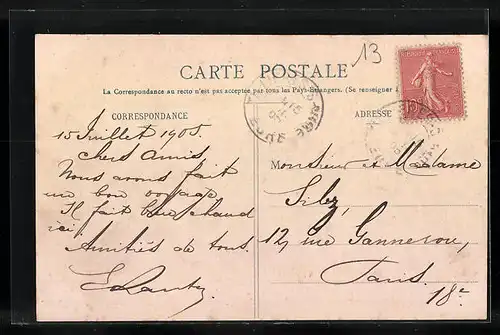 13
CARTE POSTALE
La Correspondance au recto n'est pas acceptée par tous les Pays Étrangers. (Se renseigner
CORRESPONDANCE
ADRESSE
15 Juillet 1905.
Chers Amis
Nous avons fait
un bon voyage
Il fait bien chaud
ici.
Amitiés de tous.
Monsieur et Madame
12, rue Ganneron,
Paris.
18e
EURE